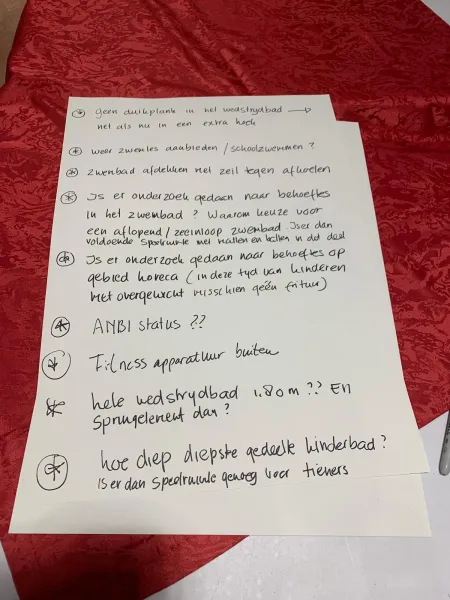 geen duikplank in het wedstrydbad →
net als nu in een extra hoek
weer zwemles aanbieden / schoolzwemmen ?
zwembad afdekken met zeil tegen afkoelen
Is er onderzoek gedaan naar behoeftes
in het zwembad ? Waarom keuze voor
een aflopend / zeeinloop zwembad. Is er dan
voldoende speelruimte met matten en ballen in dit deel
Is er onderzoek gedaan naar behoeftes op
gebied horeca ( in deze tyd van kinderen
met overgewicht misschien géén frituur)
ANBI status ??
Fitness apparatuur buiten
hele wedstrydbad 1.80m ?? En
springelement dan ?
hoe diep diepste gedeelte kinderbad ?
is er dan speelruimte genoeg voor tieners